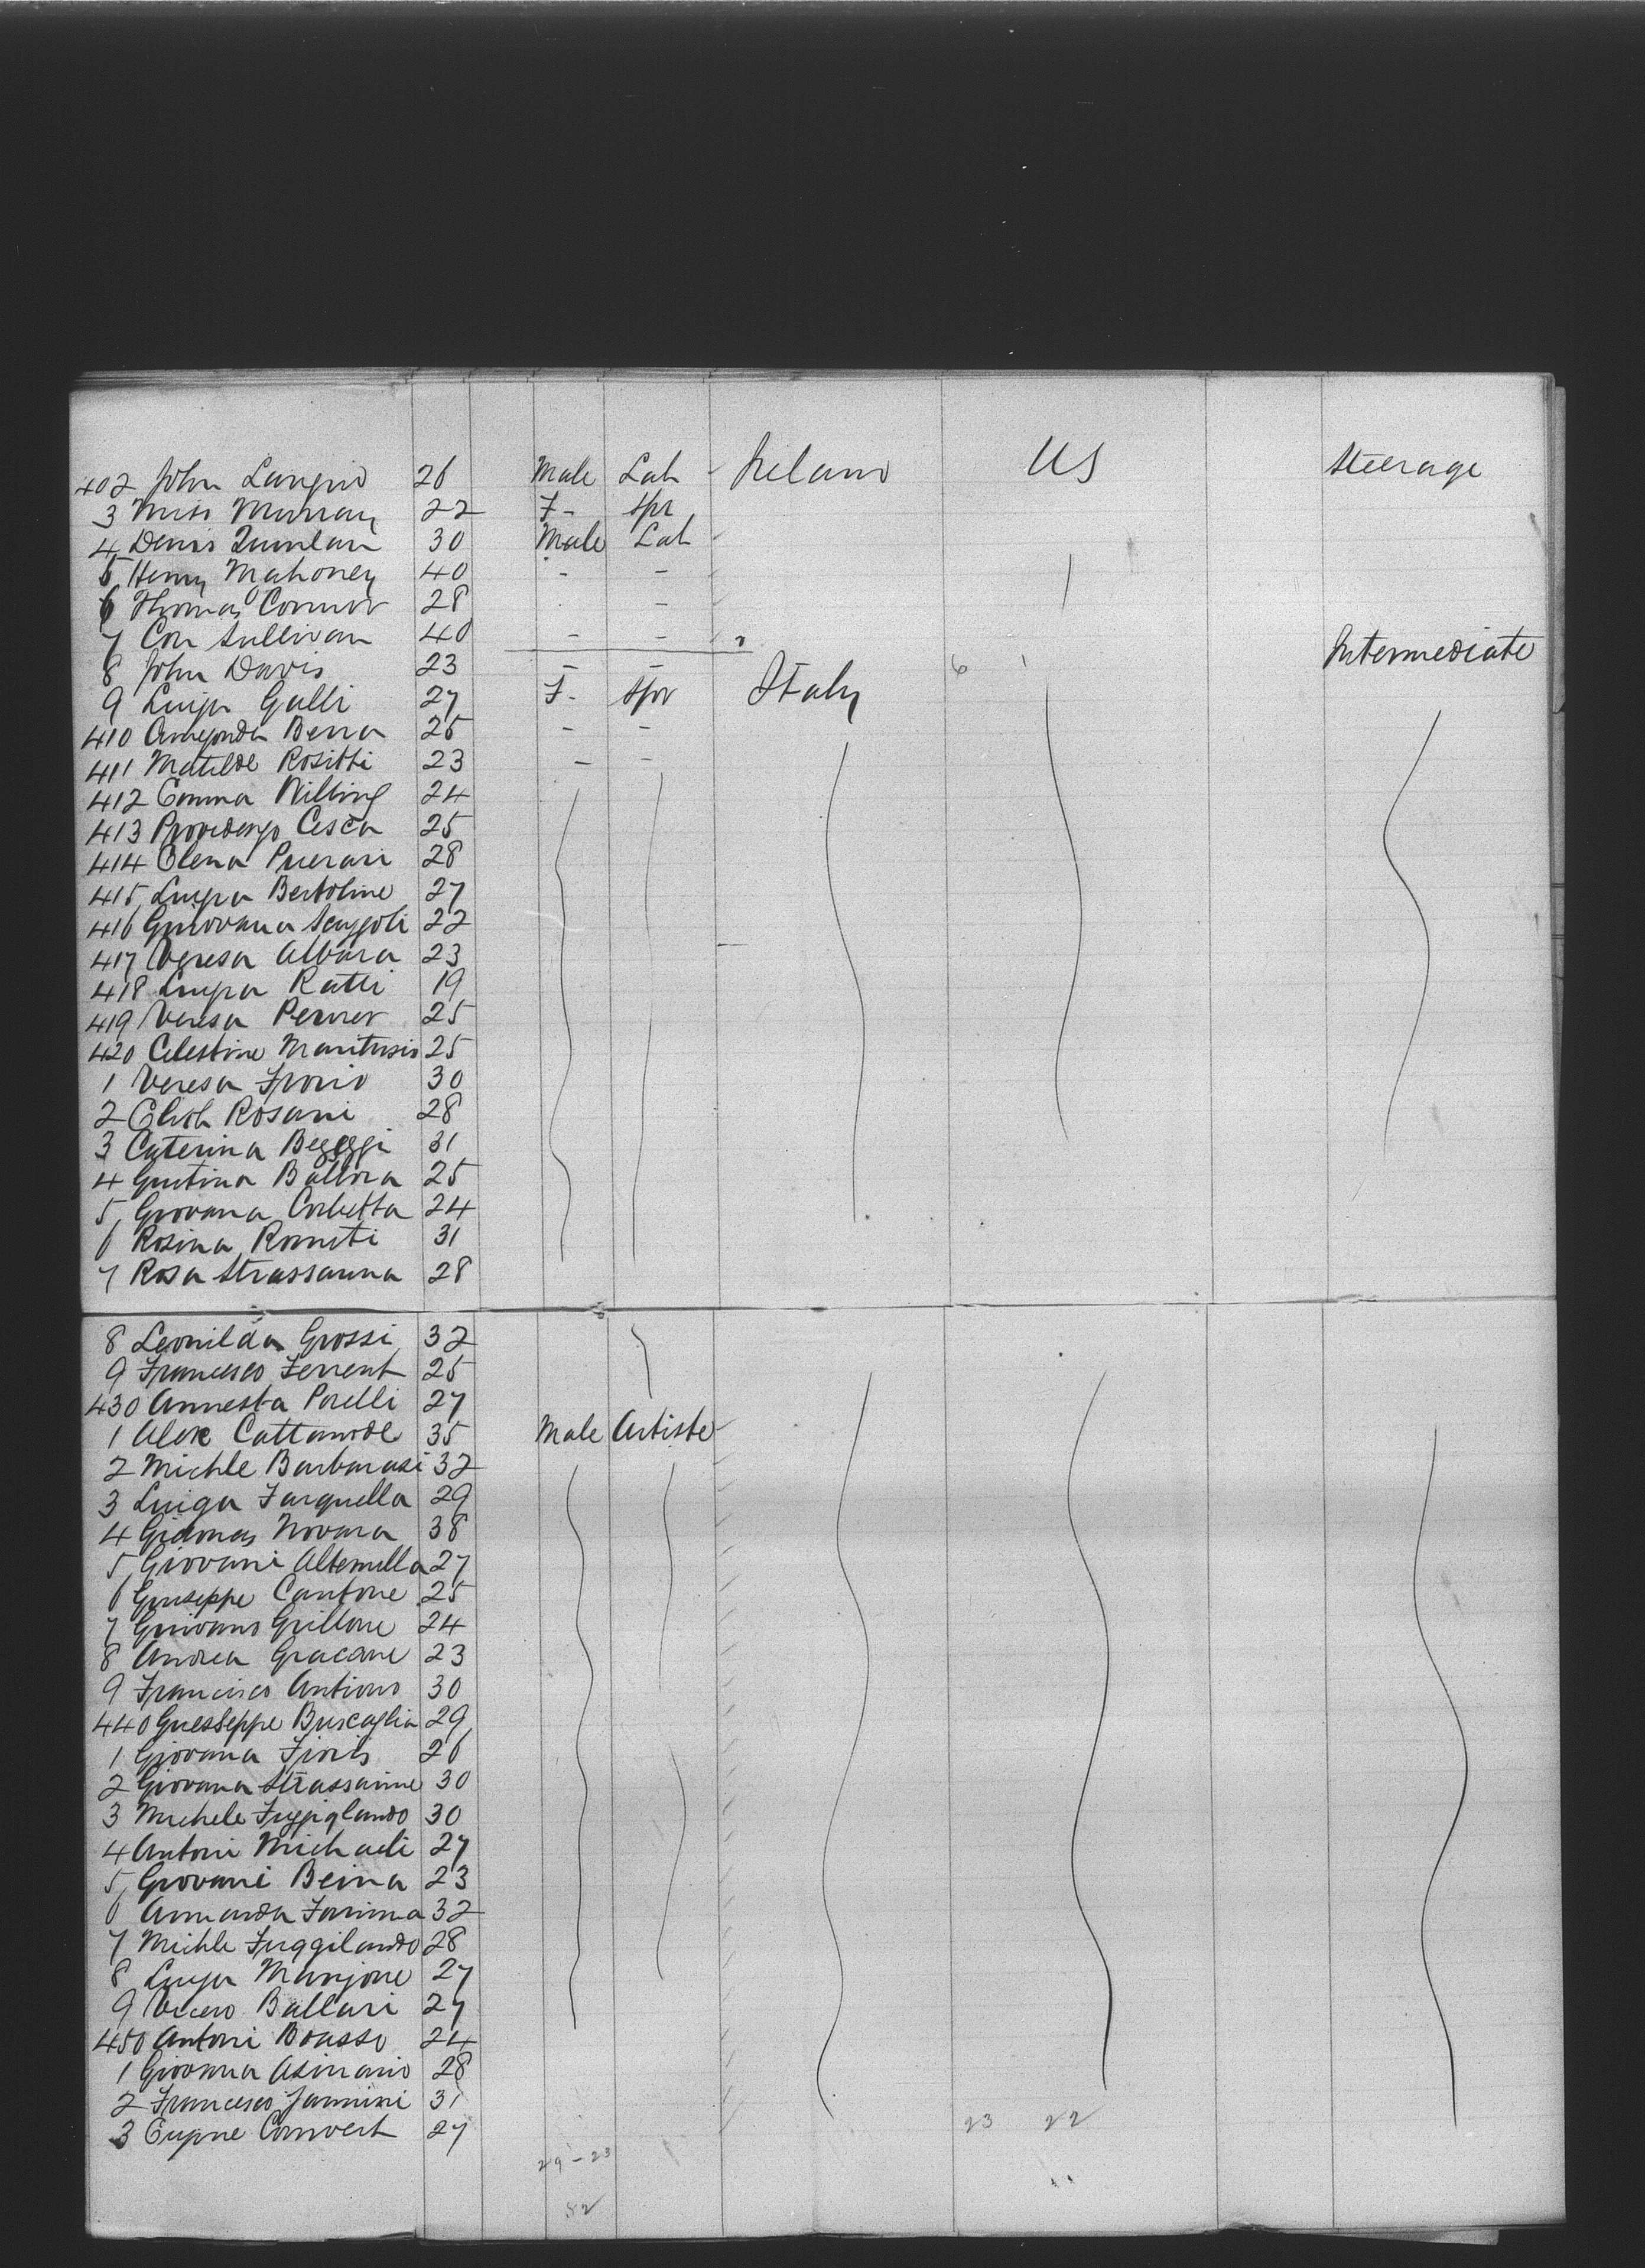 402 John Langrio 26 Male Lab - Ireland US Steerage
3 Miss Murray 22 F- Spr
4 Denis Quinlan 30 Male Lab
5 Henry Mahoney 40 - -
6 Thomas Connor 28 -
7 Con Sullivan 40 - -
8 John Davis 23 - - 6 Intermediate
9 Luiga Galli 27 F- Spr Italy
410 Berra 25 - -
411 Matilde Rositti 23 - -
412 Emma 24
413 Cesca 25
414 Elena Puerari 28
415 Luiga Bertoline 27
416 Guiovana 22
417 Veresa Albara 23
418 Luiga Ratti 19
419 Veresa Perrer 25
420 Celestine 25
1 Veresa 30
2 Rosani 28
3 Caterina 31
4 Gustina Ballora 25
5 Giovana Corbetta 24
6 Rosina Rometi 31
7 Rosa Strassanna 28
8 Leonilda Grossi 32
9 Francesco Ferrent 25
430 Annesta Porelli 27
1 Cattamode 35 Male Artiste
2 Michle Barbarasi 32
3 Luiga Farquella 29
4 Novara 38
5 Giovani Altemilla 27
6 Guiseppe Cantone 25
7 Grillone 24
8 Andrea Gracane 23
9 Francisco Antiono 30
440 Guesseppe Buscaglia 29
1 Giovana 26
2 Giovana Strassanne 30
3 Michele 30
4 Antoni Michaeli 27
5 Giovani Beina 23
6 Farinna 32
7 Michle Fuggilando 28
8 Luiga Mangone 27
9 Ballari 27
450 Antoni Boasso 24
1 Giovana Asinario 28
2 Francesco Jannini 31
3 Eugne Convert 27 23 22
29-23
52